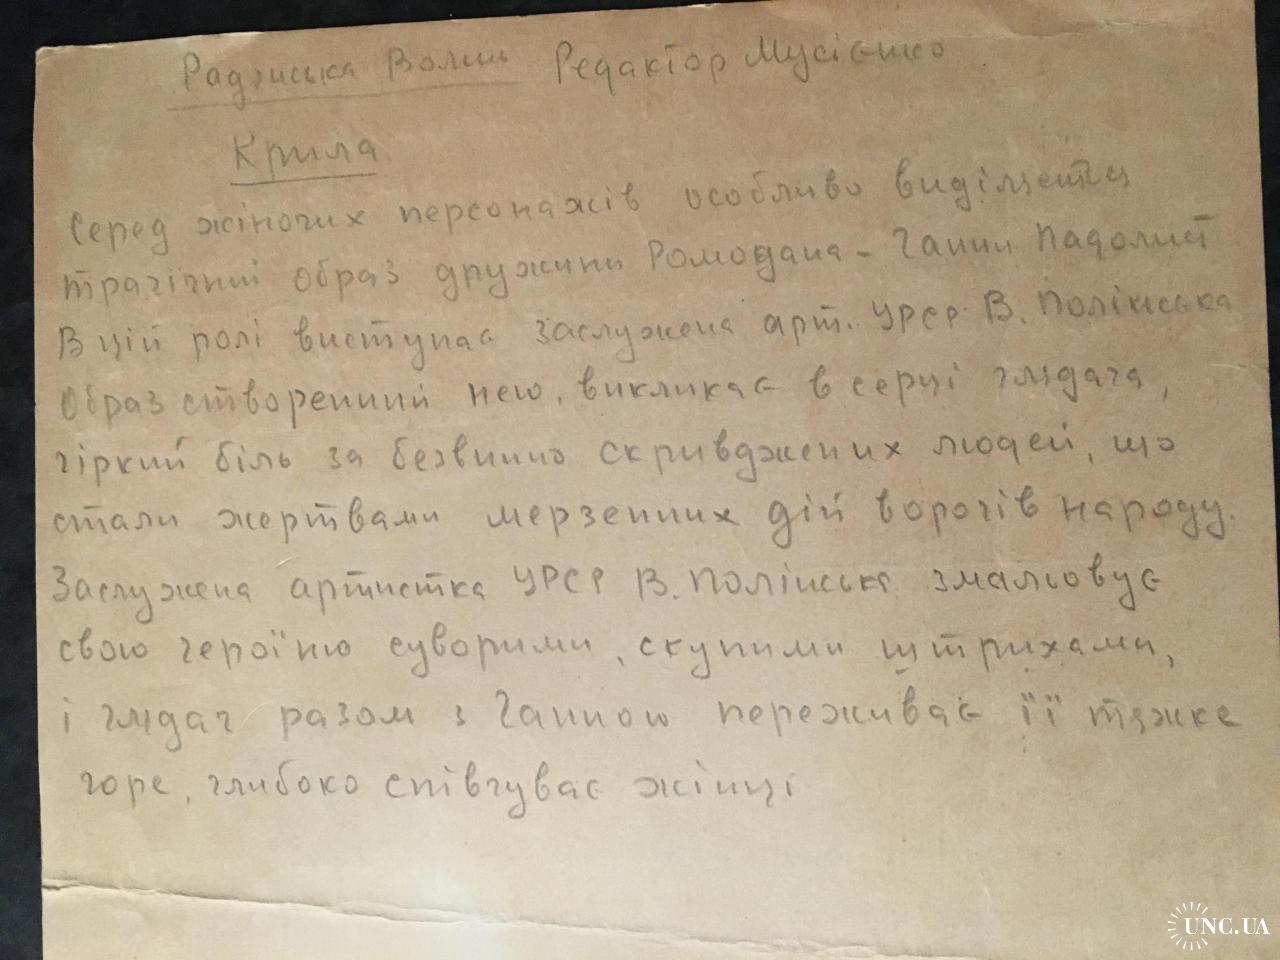 Радянська Волинь Редактор Мусієнко
Крила
Серед жіночих персонажів особливо виділяється
трагічний образ дружини Ромодана - Ганни Падолист
В цій ролі виступає заслужена арт. УРСР В. Полінська
Образ створенний нею, викликає в серці глядача,
гіркий біль за безвинно скривджених людей, що
стали жертвами мерзенних дій ворогів народу.
Заслужена артистка УРСР В. Полінська змальовує
свою героїню суворими, скупими штрихами,
і глядач разом з Ганною переживає її тяжке
горе, глибоко співчуває жінці
UNC.UA